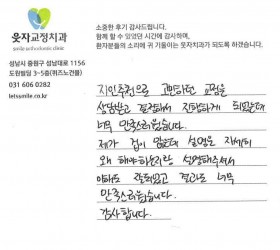 웃자교정치과
smile orthodontic clinic
성남시 중원구 성남대로 1156
도원빌딩 3~5층(위즈노건물)
031 606 0282
letsumile.co.kr
소중한 후기 감사드립니다.
함께 할 수 있었던 시간에 감사하며,
환자분들의 소리에 귀 기울이는 웃자치과가 되도록 하겠습니다.
지인추천으로 고민하던 교정을
상담받고 결정해서 진행하게 되었는데
너무 만족스러웠습니다.
제가 겁이 많은데 설명을 자세히
왜 해야하는지랑 설명해주셔서
이해도 잘되었고 결과도 너무
만족스럽습니다.
감사합니다.